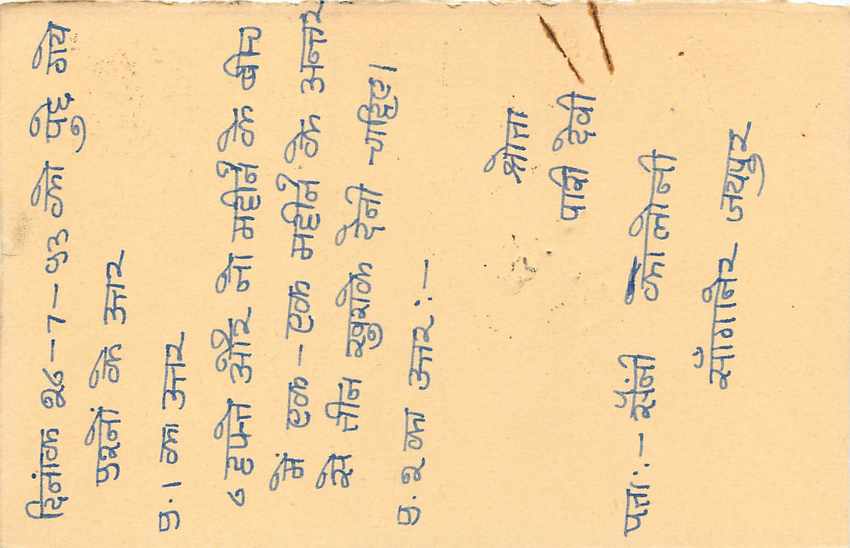 दिनांक २८-7-93 को पुछे गये
प्रश्नों के उत्तर
प्र.1 का उत्तर
6 हफ्ते और नो महीने के बीच
में एक-एक महीने के अन्तर
से तीन खुराके देनी चाहिए।
प्र.२ का उत्तर:-
श्रोता
पानी देवी
पता:- सैंनी कालोनी
साँगानेर जयपुर